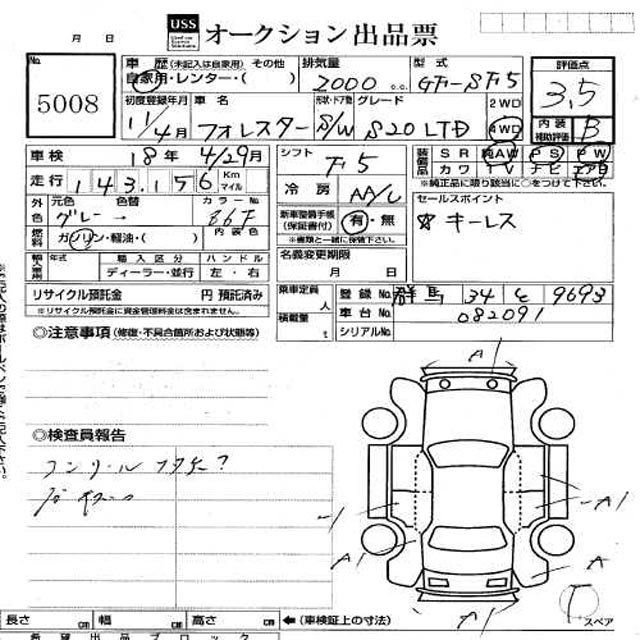 USS オークション出品票
月 日
No. 5008
車歴(未記入は自家用) その他
自家用・レンター・( )
排気量 2000 c.c.
型式 GF-SF5
評価点 3.5
内装補助評価 B
初度登録年月 11/4月
車名 フォレスター
形状・ドア数 S/W
グレード S20 LTD
2WD
4WD
車検 18年 4/29月
シフト F5
装備品 SR AW PS PW
カワ TV ナビ エアB
※純正品に限り該当に○をつけて下さい。
走行 143,156 Km マイル
冷房 AA/C
外色 元色 グレー 色替 → カラーNo. 86F
燃料 ガソリン・軽油・( ) 内装色
新車整備手帳(保証書付) 有・無
※書類と一緒に保管下さい。
セールスポイント
☆キーレス
輸入車用 年式 輸入区分 ハンドル
ディーラー・並行 左・右
名義変更期限
月 日
リサイクル預託金 円 預託済み
※リサイクル預託金に資金管理料金は含まれません。
乗車定員 人
積載量 t
登録No. 群馬 34 せ 9693
車台No. 082091
シリアルNo.
◎注意事項(修復・不具合箇所および状態等)
◎検査員報告
A1
-1
-A1
A1
A
A1
スペア
長さ cm 幅 cm 高さ cm ←(車検証上の寸法)
希望出品ブロック